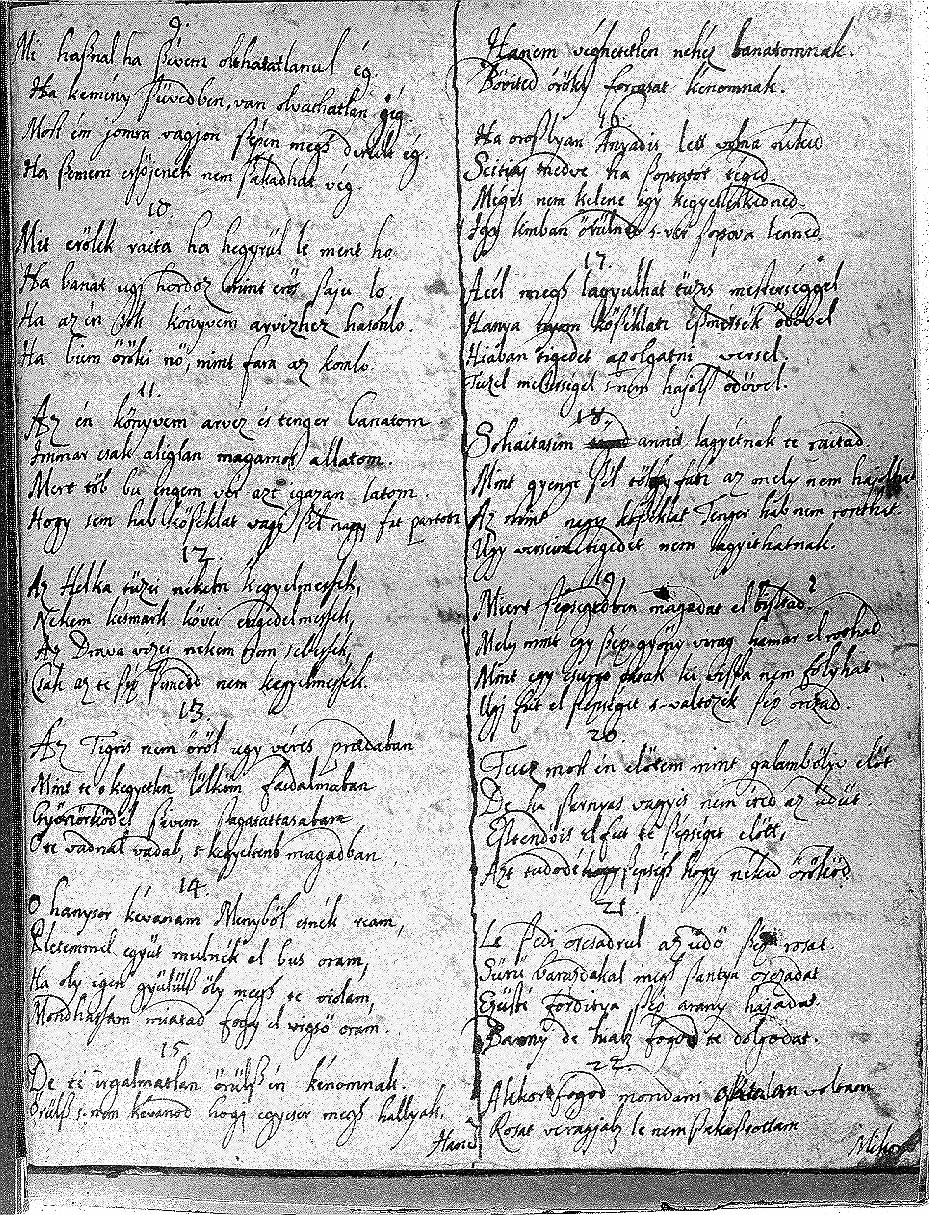 9.
Mi haßnal ha ßivem olthatatlanul ég
Ha kemény ßivedben van olvathatlan gég
Mosk én jomra vagjon ßépen megh derült ég.
Ha ßemem essöjenek nem ßakadhat vég.
10.
Mit erölék raita ha hegyrül le ment ho
Ha banat ugj hordoz mint erös saju lo.
Ha az én sok könyvem arvizhez hasonlo.
Ha bum örökké nö, mint fara az komlo.
11.
Az én könyvem arvez és tenger banatom
Immar csak aliglan magamot allatom.
Mert töb bu engem vér azt igazan latom.
Hogy sem hab kößiklat vagy ßél nagy fat parton
12.
Az Hetka tüzei nékem kegyelmessek,
Nekem késmark kövei engedelmessek,
Az Drava vizei nekem nem sebessek,
Csak az te ßép ßemeid nem kegyelmessek.
13.
Az Tigris nem öröl ugy véres prædaban
Mint te o kegyetlen lölköm faidalmaban
Gyönörködöl ßivem ßagattatasabann
O te vadnal vadab, s kegyetlenb magadban
14.
O hanysor kévanam Menyböl esnék ream,
Életemmel együt mulnék el bus oram,
Ha oly igen gyülülß öly megh te violám,
Mondhassam miattad fogy el vegsö orám.
15.
De te irgalmatlan örülß én kénomnak.
Örülß s nem kévanod hogy egyser megh hallyak.
Hane
Hanem véghetetlen nehéz banatomnak.
Bövited örökké forrasat kénomnak.
16.
Ha oroßlyan Anyadis lett volna néked
Scitiaj medve ha ßoptatot téged
Mégis nem kelene igy kegyetlenkedned
Igy kimban örülnöd s vér ßopova lenned.
17.
Aćél megh lagyulhat tüzis mesterséggel
Hanya kößiklatt ößvel
Hiaban tigedet apolgatni versel.
Tüzel mesterségel s nem hajolß ößvel.
18.
Sohaitasim annit lagyétnak te raitad
Mint gyenge ßél tölgy fati az mely nem hajolhat
Az mint nagy köß̈iklat Tenger hab nem ronthat
Ugy verseim tigedet nem lagyithatnak.
19.
Miert ßépsegedben magadat el biztad?
Mely mint egy ßép gyöngy virag hamar elrothad
Mint egy csurgo patak ki vißßa nem folyhat
Ugj fut el ßépséged s valtozik ßép orczad.
20.
Fucz mosk én elöttem mint galamb ölyv elöt
De ha ßarnyas vagyis nem éred az üdöt
Estendöis elfut te ßépséged elött,
Azt tudodé ßépségh hogy néked örökös.
21.
Le ßedi orczadrul az üdö ßép rosat
Sürü barazdakal megh ßantya orczadat
Ezüsté forditya ßép arany hajadat.
Banny de halz fogod te dolgodat.
22.
Akkor fogod mondani oktalan voltam
Rosat viragjab le nem ßakaßtottam
Mikor